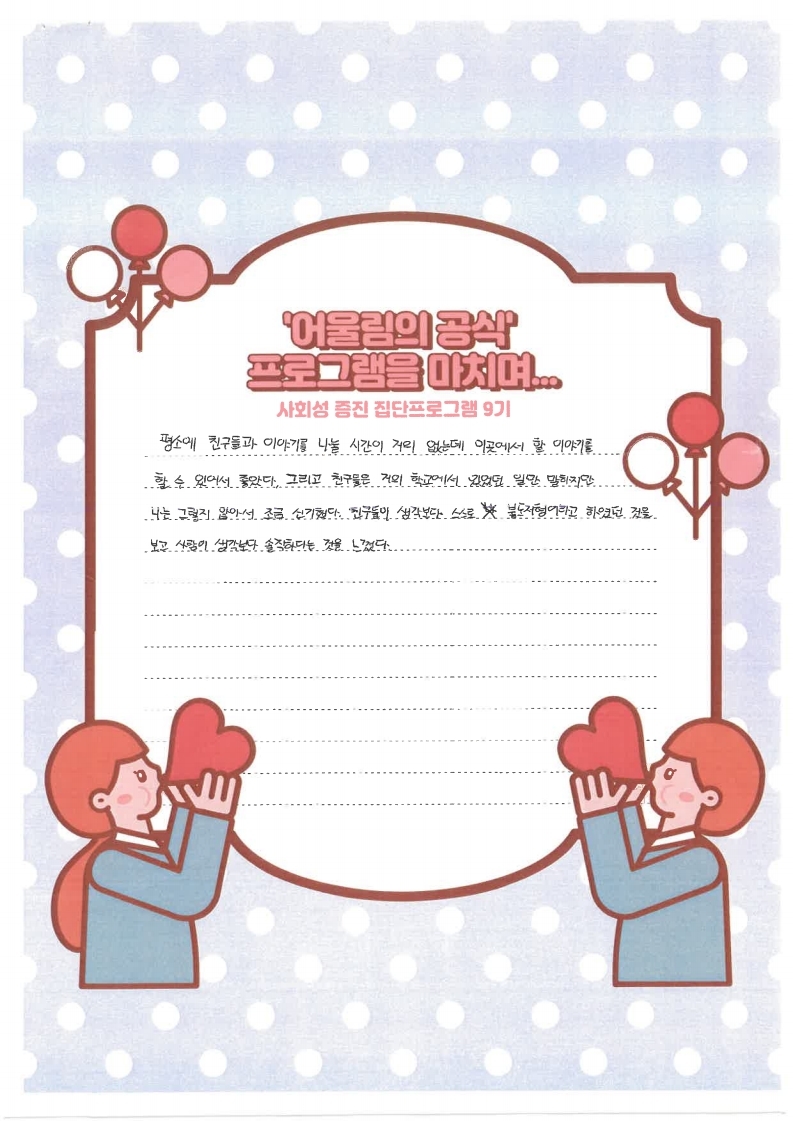 '어울림의 공식'
프로그램을 마치며...
사회성 증진 집단프로그램 9기
평소에 친구들과 이야기를 나눌 시간이 거의 없는데 이곳에서 할 이야기를
할 수 있어서 좋았다. 그리고 친구들은 거의 학교에서 있었던 일만 말하지만
나는 그렇지 않아서 조금 신기했다. 친구들이 생각보다 스스로 하였던 것을
보고 사람이 생각보다 솔직하다는 것을 느꼈다.